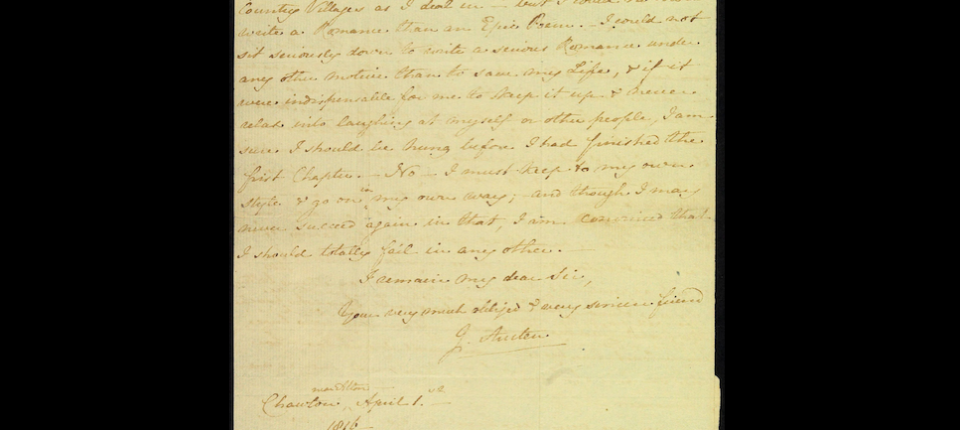 Country Villages as I deal in – but I could no more
write a Romance than an Epic Poem. – I could not
sit seriously down to write a serious Romance under
any other motive than to save my Life, & if it
were indispensable for me to keep it up & never
relax into laughing at myself or other people, I am
sure I should be hung before I had finished the
first Chapter. – No – I must keep to my own
style & go on in my own way; and though I may
never succeed again in that, I am convinced that
I should totally fail in any other. –
I remain my dear Sir,
Your very much obliged & very sincere friend
J. Austen
near Alton
Chawton, April 1.st
1816